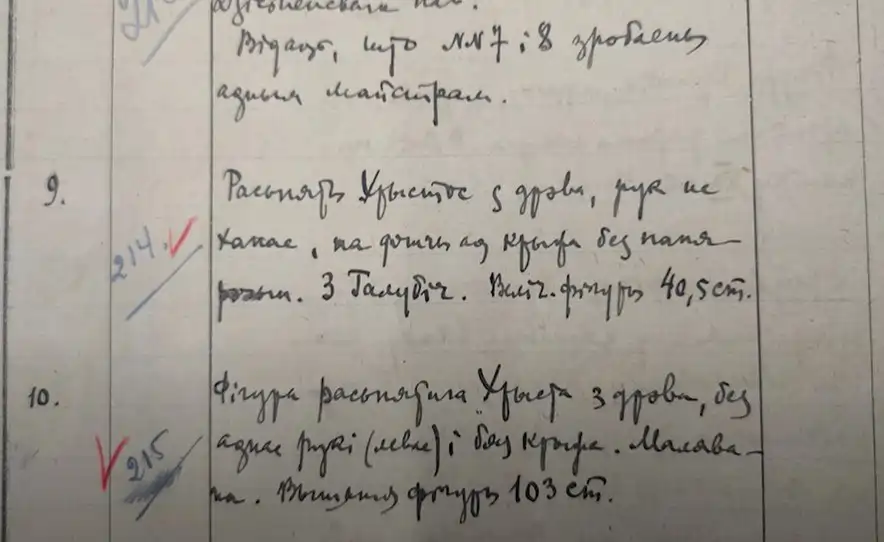 Відаць, што NN 7 і 8 зроблены
адным майстрам.
9.
Расьпяты Хрыстос з дрэва, рук не
214.
хапае, на дошцы ад крыжа без папя-
рэчын. З Галубіч. Веліч. фігуры 40,5 ст.
10.
Фігура расьпятага Хрыста з дрэва, без
215
аднае рукі (левае) і бяз крыжа. Малява-
на. Вышыня фігуры 103 ст.